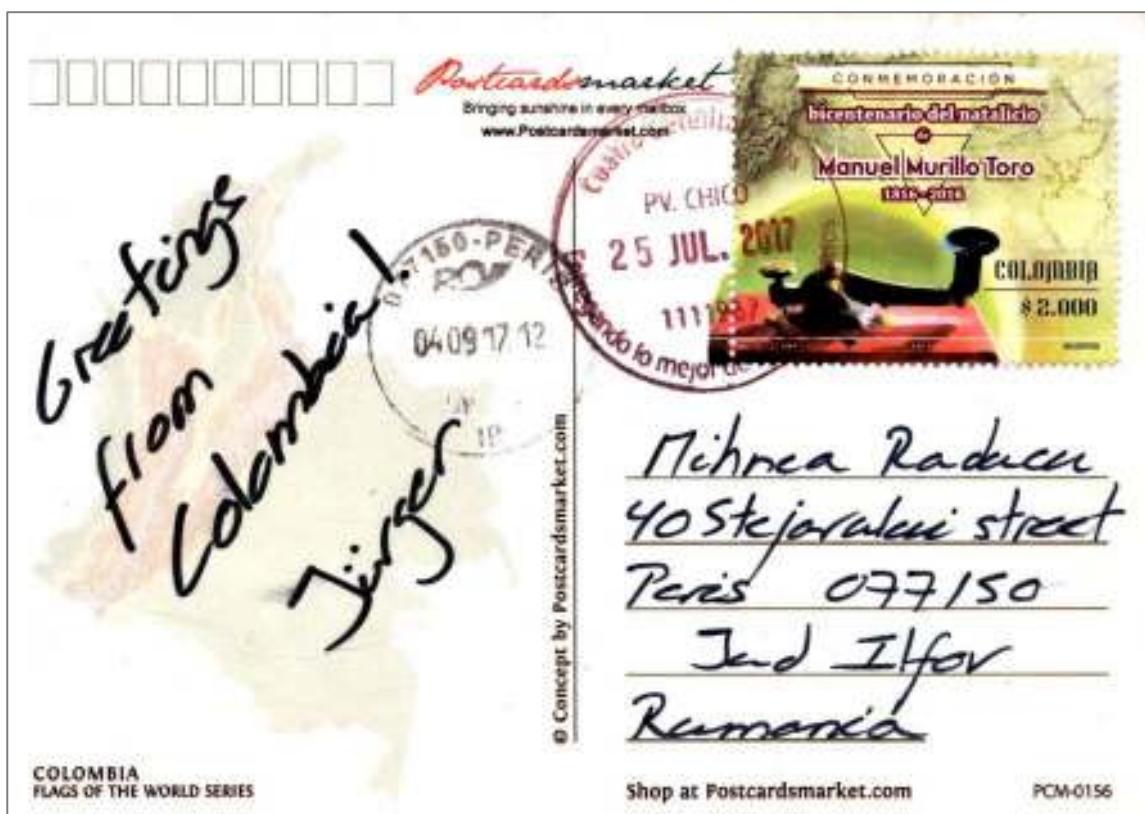 Postcardsmarket
Bringing sunshine in every mailbox
www.Postcardsmarket.com
CONMEMORACIÓN
bicentenario del natalicio
de
Manuel Murillo Toro
1816-2016
COLOMBIA
$2.000
Cuatro
PV. CHICO
25 JUL. 2017
1111937
Entregando lo mejor de
077150-PERIS
040917.12
Greetings
from
Colombia!
Jürger
© Concept by Postcardsmarket.com
Mihnea Raducu
40 Stejarului street
Peris 077150
Jud Ilfov
Rumania
COLOMBIA
FLAGS OF THE WORLD SERIES
Shop at Postcardsmarket.com
PCM-0156